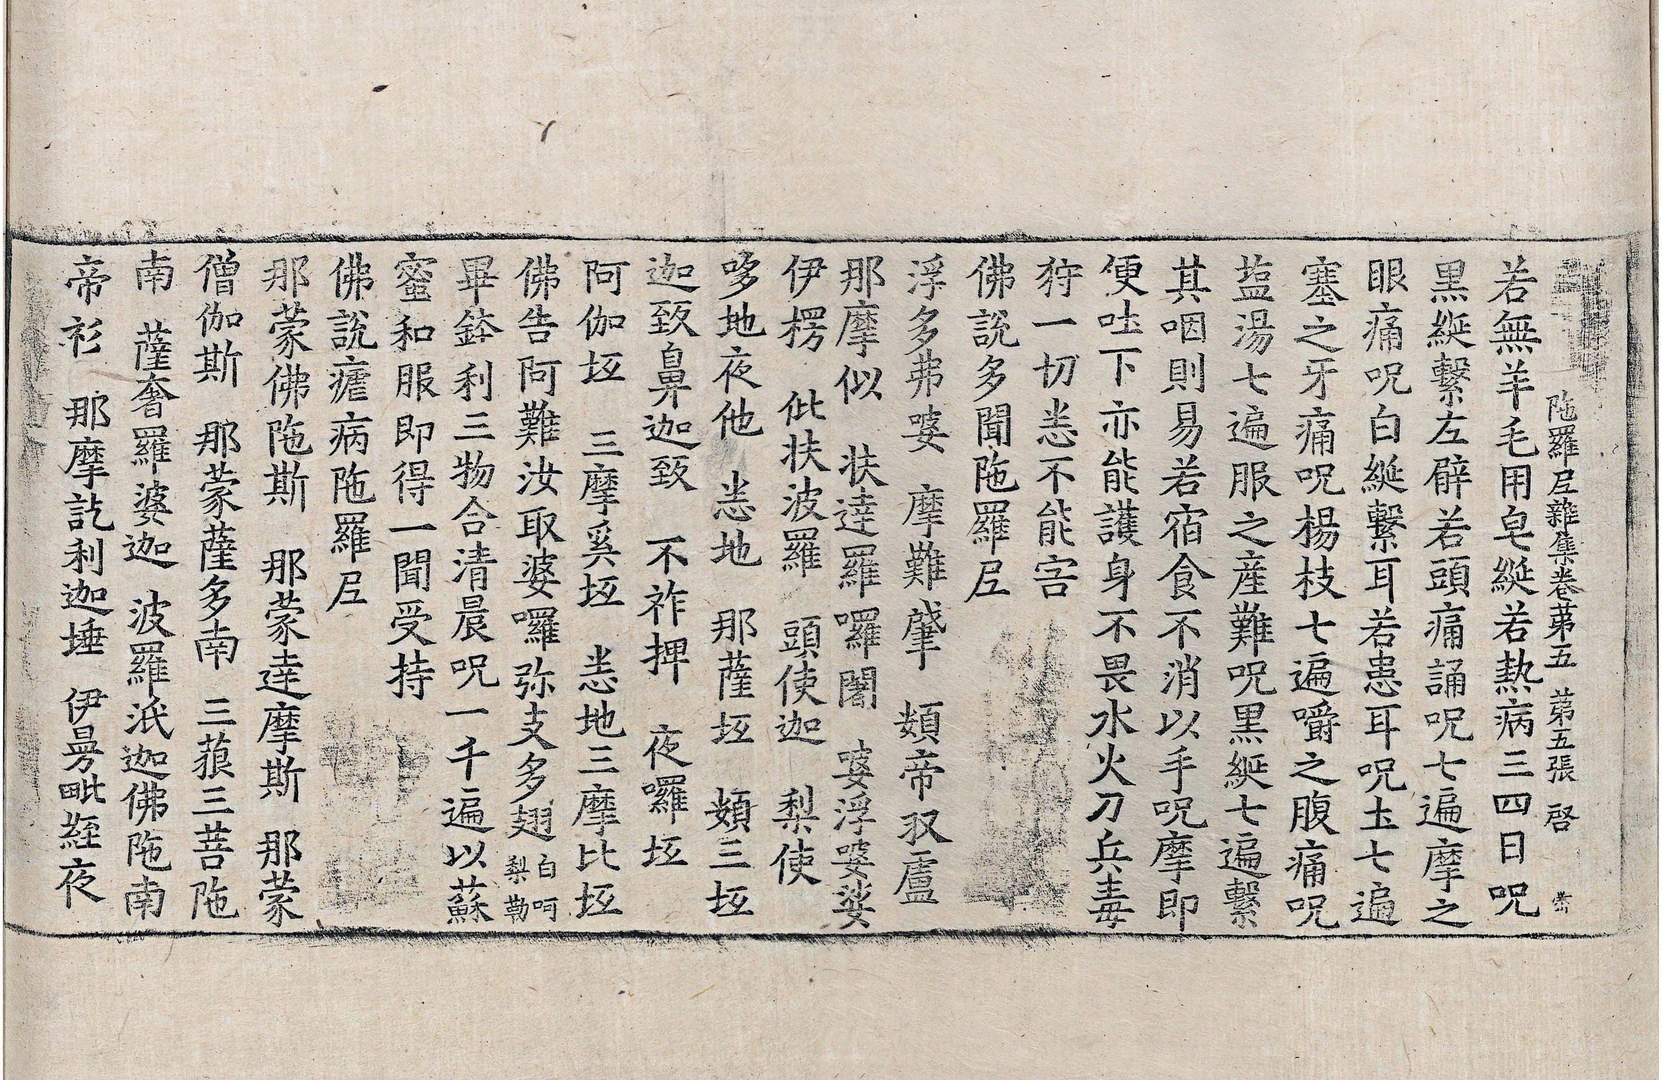 陁羅尼雜集卷苐五 苐五張 啓
若無羊毛用皂綖若熱病三四日呪
黒綖繫左臂若頭痛誦呪七遍摩之
眼痛呪白綖繫耳若患耳呪土七遍
塞之牙痛呪楊枝七遍嚼之腹痛呪
盐湯七遍服之産難呪黒綖七遍繫
其咽則易若宿食不消以手呪摩即
便吐下亦能護身不畏水火刀兵毒
狩一切恙不能害
佛說多聞陁羅尼
浮多弗婆 摩難肇 頞帝㕛盧
那摩似 扶達羅 囉闍 婆浮婆娑
伊楞 仳扶波羅 頭使迦 梨使
哆地夜他 恙地 那薩坘 頞三坘
迦致鼻迦致 不祚捭 夜囉坘
阿伽坘 三摩奚坘 恙地三摩比坘
佛告阿難汝取婆囉弥支多翅 白呵梨勒
畢鉢利三物合清晨呪一千遍以蘇
蜜和服即得一聞受持
佛說瘧病陁羅尼
那蒙佛陁斯 那蒙達摩斯 那蒙
僧伽斯 那蒙薩多南 三菔三菩陁
南 薩奢羅婆迦 波羅泜迦佛陁南
帝衫 那摩訖利迦埵 伊曼毗䇔夜